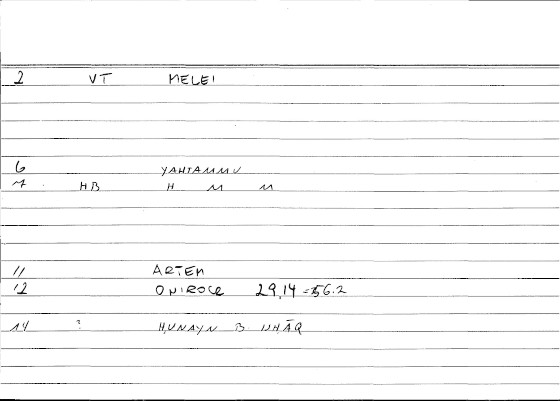 2 VT MELEI
6 YAHTAMMU
7 HB H M M
11 ARTEM
12 ONIROCR 29,14 = 56.2
14 ? ḤUNAYN B ISḤĀQ